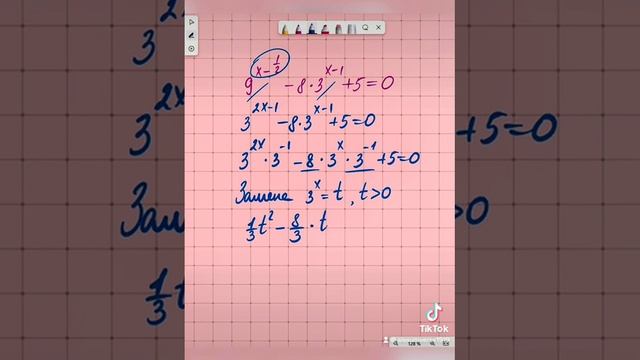 9^{x-\frac{1}{2}} - 8 \cdot 3^{x-1} + 5 = 0
3^{2x-1} - 8 \cdot 3^{x-1} + 5 = 0
3^{2x} \cdot 3^{-1} - 8 \cdot 3^{x} \cdot 3^{-1} + 5 = 0
Замена 3^{x} = t, t > 0
\frac{1}{3}t^{2} - \frac{8}{3} \cdot t
TikTok
128 %